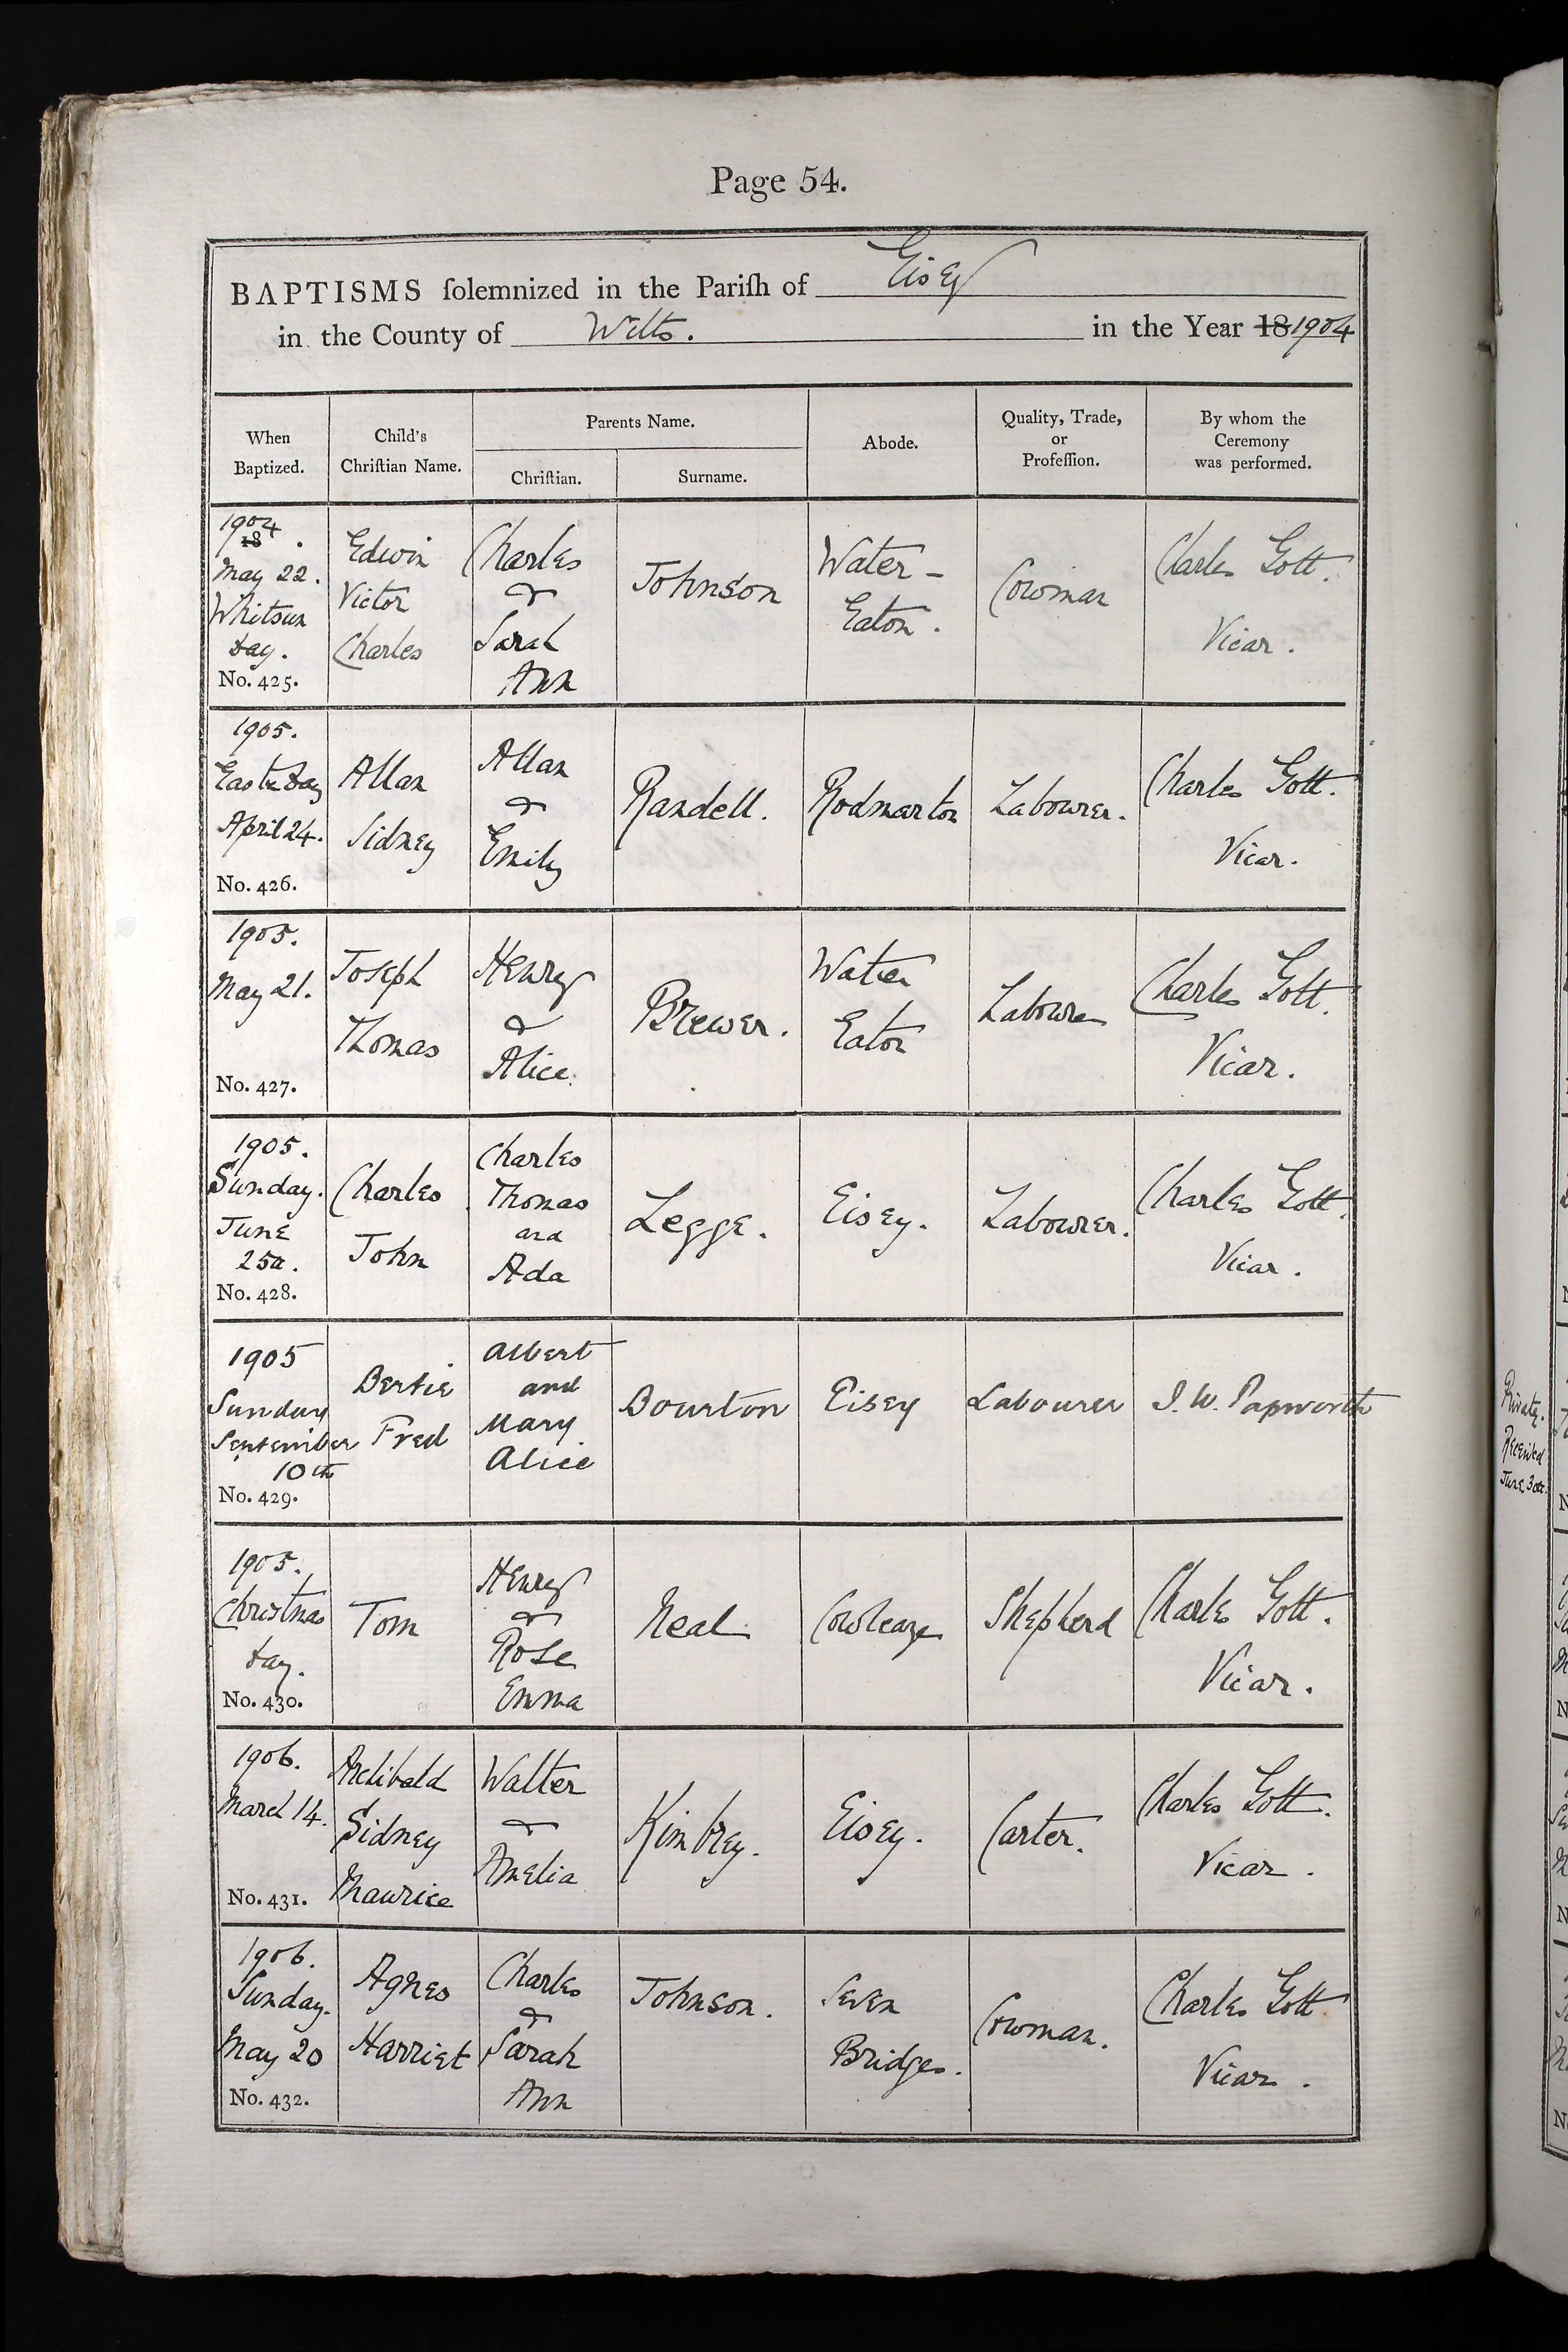 Page 54.
BAPTISMS ſolemnized in the Pariſh of Eisey
in the County of Wilts. in the Year 18 1904
When
Baptized.
Child's
Chriſtian Name.
Parents Name.
Chriſtian.
Surname.
Abode.
Quality, Trade,
or
Profeſſion.
By whom the
Ceremony
was performed.
1904
18 .
May 22.
Whitsun
Day.
No. 425.
Edwin
Victor
Charles
Charles
&
Sarah
Ann
Johnson
Water-
Eaton.
Cowman
Charles Gott.
Vicar.
1905.
Easter Day
April 24.
No. 426.
Allan
Sidney
Allan
&
Emily
Randell.
Rodmarton
Labourer.
Charles Gott.
Vicar.
1905.
May 21.
No. 427.
Joseph
Thomas
Henry
&
Alice.
Brewer.
Water
Eaton
Labourer
Charles Gott.
Vicar.
1905.
Sunday.
June
25th.
No. 428.
Charles
John
Charles
Thomas
and
Ada
Legge.
Eisey.
Labourer.
Charles Gott.
Vicar.
1905
Sunday
September
10th
No. 429.
Bertie
Fred
Albert
and
Mary
Alice
Bourton
Eisey
Labourer
J. W. Papworth
1905.
Christmas
Day.
No. 430.
Tom
Henry
&
Rose
Emma
Neal
Cowleaze
Shepherd
Charles Gott.
Vicar.
1906.
March 14.
No. 431.
Archibald
Sidney
Maurice
Walter
&
Amelia
Kimbrey.
Eisey.
Carter.
Charles Gott.
Vicar.
1906.
Sunday.
May 20
No. 432.
Agnes
Harriet
Charles
&
Sarah
Ann
Johnson.
Seven
Bridges.
Cowman.
Charles Gott
Vicar.
Privately.
Received
June 30th.